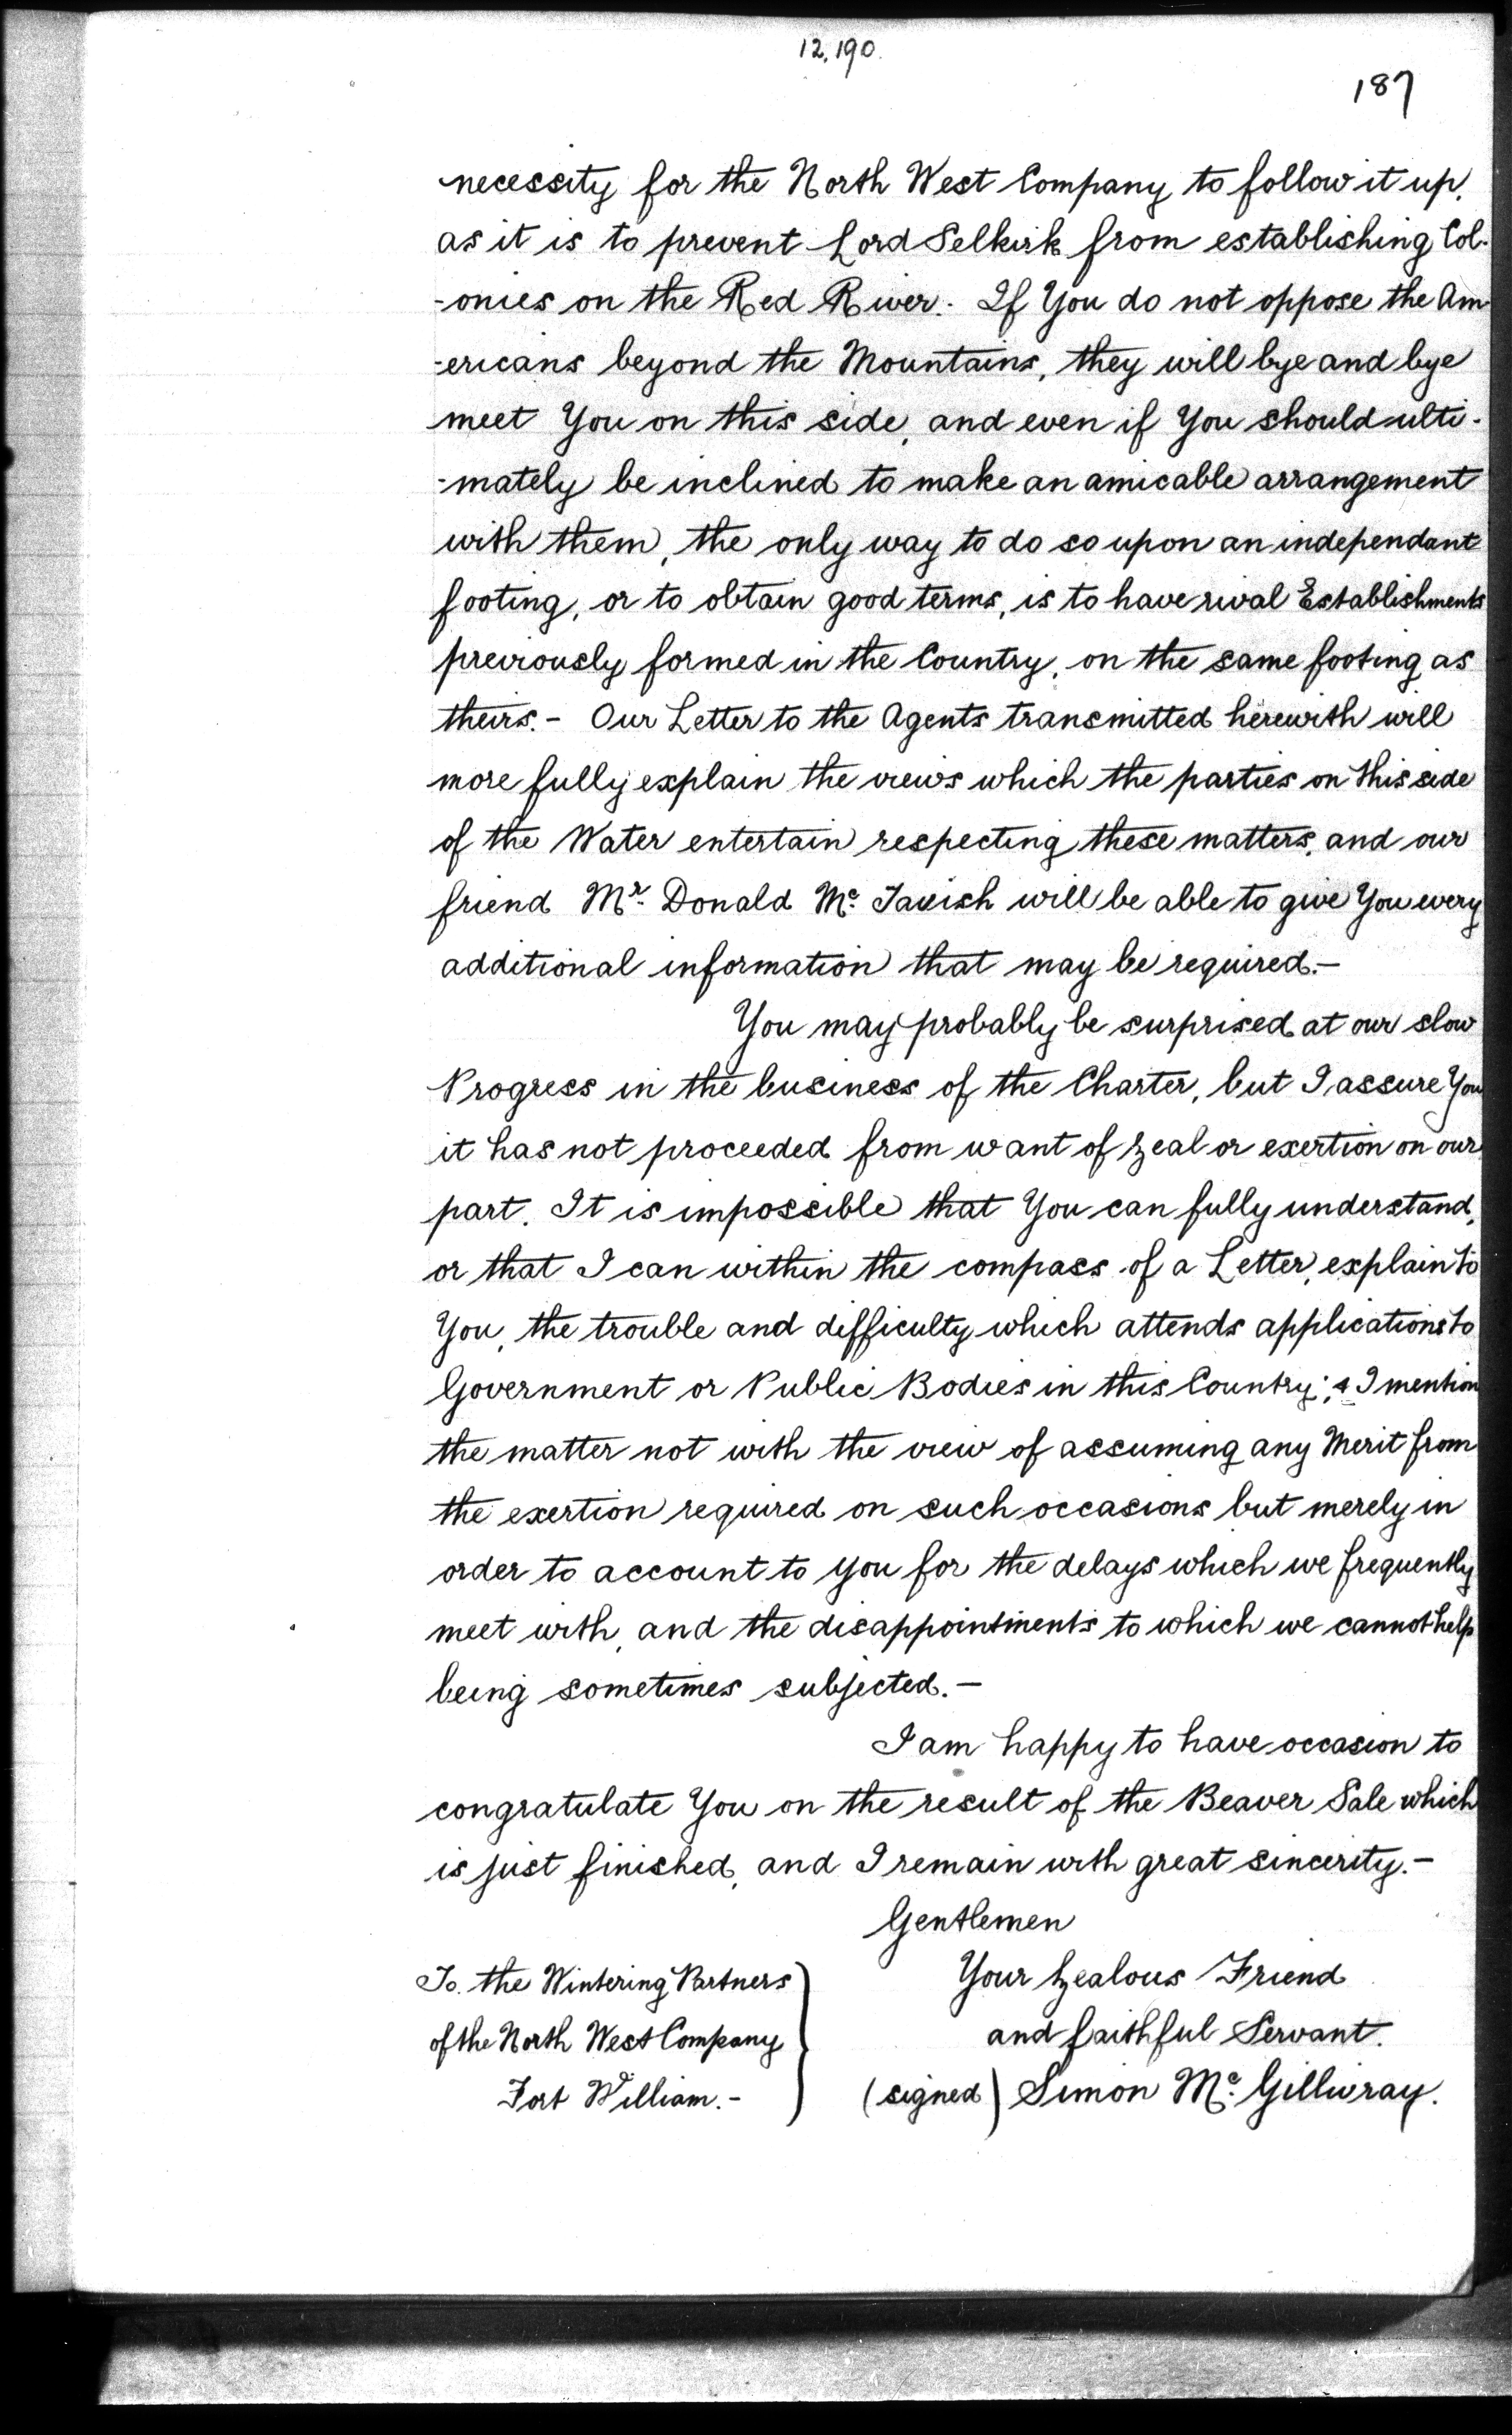 12,190.
187
necessity for the North West Company to follow it up,
as it is to prevent Lord Selkirk from establishing Col-
-onies on the Red River. If You do not oppose the Am-
-ericans beyond the Mountains, they will bye and bye
meet You on this side, and even if You should ulti-
-mately be inclined to make an amicable arrangement
with them, the only way to do so upon an independant
footing, or to obtain good terms, is to have rival Establishments
previously formed in the Country, on the same footing as
theirs. - Our Letter to the Agents transmitted herewith will
more fully explain the views which the parties on this side
of the Water entertain respecting these matters, and our
friend Mr. Donald Mc. Tavish will be able to give You every
additional information that may be required. -
You may probably be surprised at our slow
Progress in the business of the Charter, but I assure You
it has not proceeded from want of zeal or exertion on our
part. It is impossible that You can fully understand,
or that I can within the compass of a Letter, explain to
You, the trouble and difficulty which attends applications to
Government or Public Bodies in this Country; & I mention
the matter not with the view of assuming any Merit from
the exertion required on such occasions but merely in
order to account to you for the delays which we frequently
meet with, and the disappointments to which we cannot help
being sometimes subjected. -
I am happy to have occasion to
congratulate You on the result of the Beaver Sale which
is just finished, and I remain with great sincerity. -
Gentlemen
Your Zealous Friend
and faithful Servant.
(signed) Simon Mc. Gillivray.
To. the Wintering Partners
of the North West Company
Fort William. -